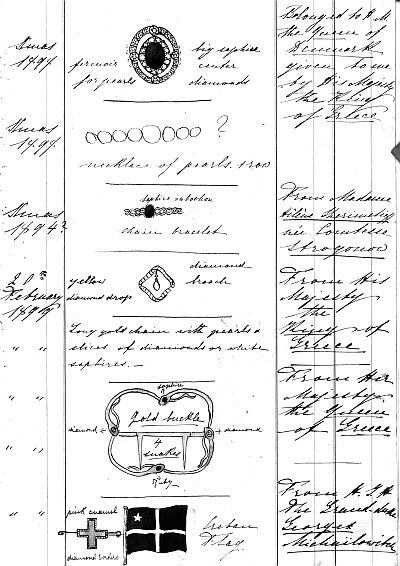 Xmas
1894
fermoir
for pearls
big saphire
center
diamonds
Belonged to H M
the Queen of
Denmark
given to me
by His Majesty
the King
of Greece
Xmas
1894
?
necklace of pearls. 1 row
Xmas
1894?
saphire cabochon
chain bracelet
From Madame
Hélène Sherimetieff
née Comtesse
Strogonow
20th
February
1899
yellow
diamond drops
diamond
brooch
From His
Majesty
the
King of
Greece
" "
Long gold chain with pearls &
slices of diamonds or white
saphires. —
" "
saphire
gold buckle
diamond
diamond
4
snakes
Ruby
From Her
Majesty
the Queen
of Greece
" "
" "
pink enamel
diamond borders
Cretan
Flag
From H. I. H.
The Grand duke
Georges
Michailowitch